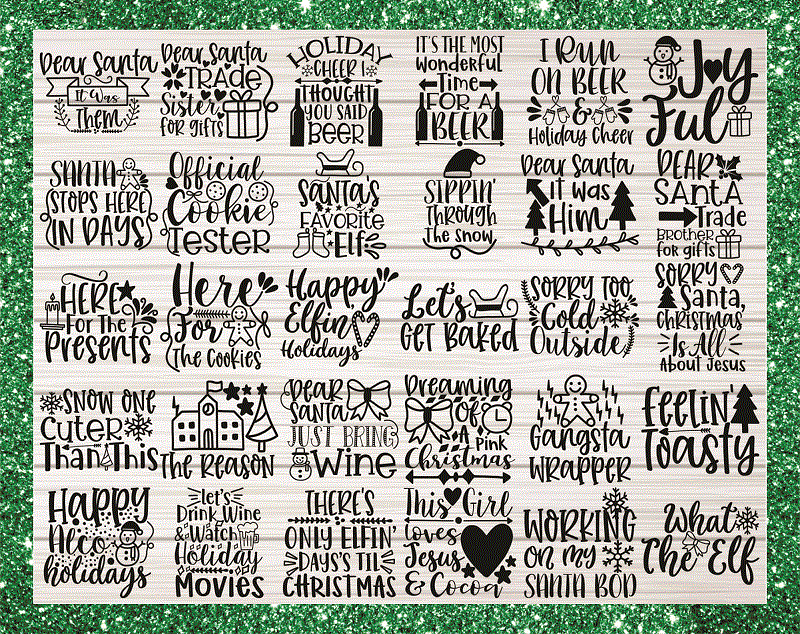 Dear Santa
It Was
Them
Dear Santa
TRADe
Sister
for gifts
HOLIDAY
CHEER I
THOUGHT
YOU SAID
BEER
IT'S THE MOST
Wonderful
Time
FOR A
BEER
I RUN
ON BEER
&
Holiday Cheer
Joy
Ful
SANTA
STOPS HERE
IN DAYS
Official
Cookie
Tester
SANTA'S
FAVORITE
Elf
SIPPIN'
Through
The Snow
Dear Santa
it was
Him
DEAR
SAntA
Trade
BROTHER
for gifts
HERE
For The
Presents
Here
For
The Cookies
Happy
Elfin'
Holidays
Let's
GET BAKED
SORRY TOO
Cold
Outside
SORRY
Santa,
CHRISTMAS
Is All
About Jesus
SNOW ONE
CUTER
Than This
The Reason
Dear
Santa
JUST BRING
Wine
Dreaming
Of
A Pink
Christmas
Gangsta
WRAPPER
Feelin'
Toasty
Happy
Neco
holidays
let's
Drink Wine
& Watch
Holiday
Movies
THERE'S
ONLY ELFIN'
DAYS'S TIL
CHRISTMAS
This Girl
loves
Jesus
& Cocoa
WORKING
on my
SANTA BOD
What
The Elf